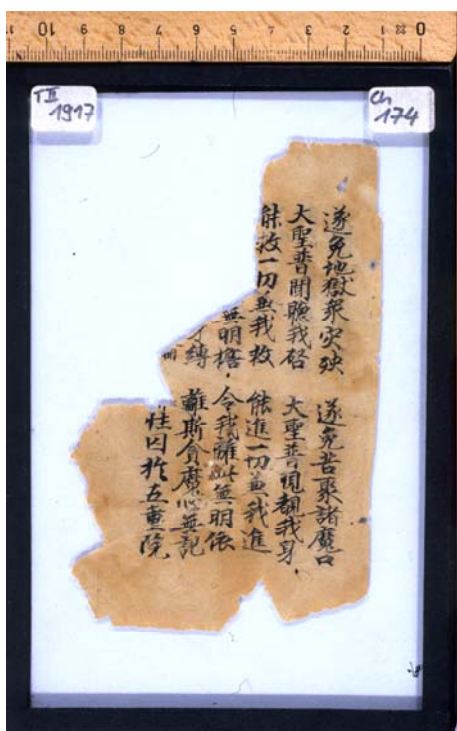 10 9 8 7 6 5 4 3 2 1 0
T II
1917
Ch
174
遂免地獄衆災殃 遂免苦聚諸魔口
大聖普聞聽我啓 大聖普現覩我身
能救一切兼我救 能進一切兼我進
無明擔 令我離此無明依
縛 離斯貪癡心無記
性囚於五重院